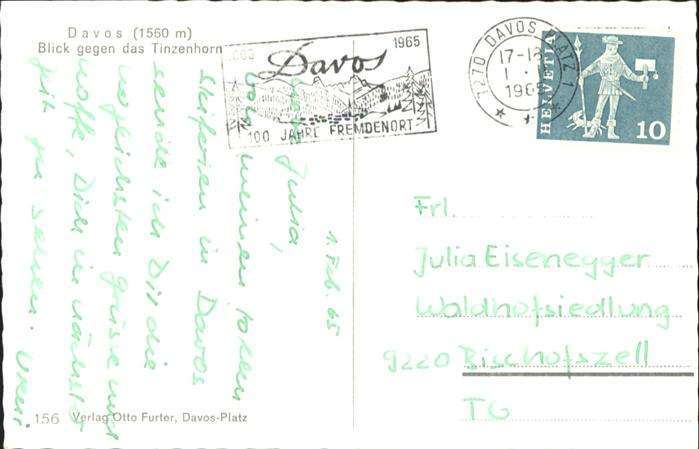 Davos (1560 m)
Blick gegen das Tinzenhorn
1865 1965
Davos
100 JAHRE FREMDENORT
7270 DAVOS PLATZ 1
17-18
HELVETIA
10
1. Feb. 65
Julia,
meinen tollen
Skiferien in Davos
sende ich Dir die
herzlichsten Grüsse und
hoffe, Dich im nächst
zu sehen.
Frl.
Julia Eisenegger
Waldhofsiedlung
9220 Bischofszell
TG
156 Verlag Otto Furter, Davos-Platz